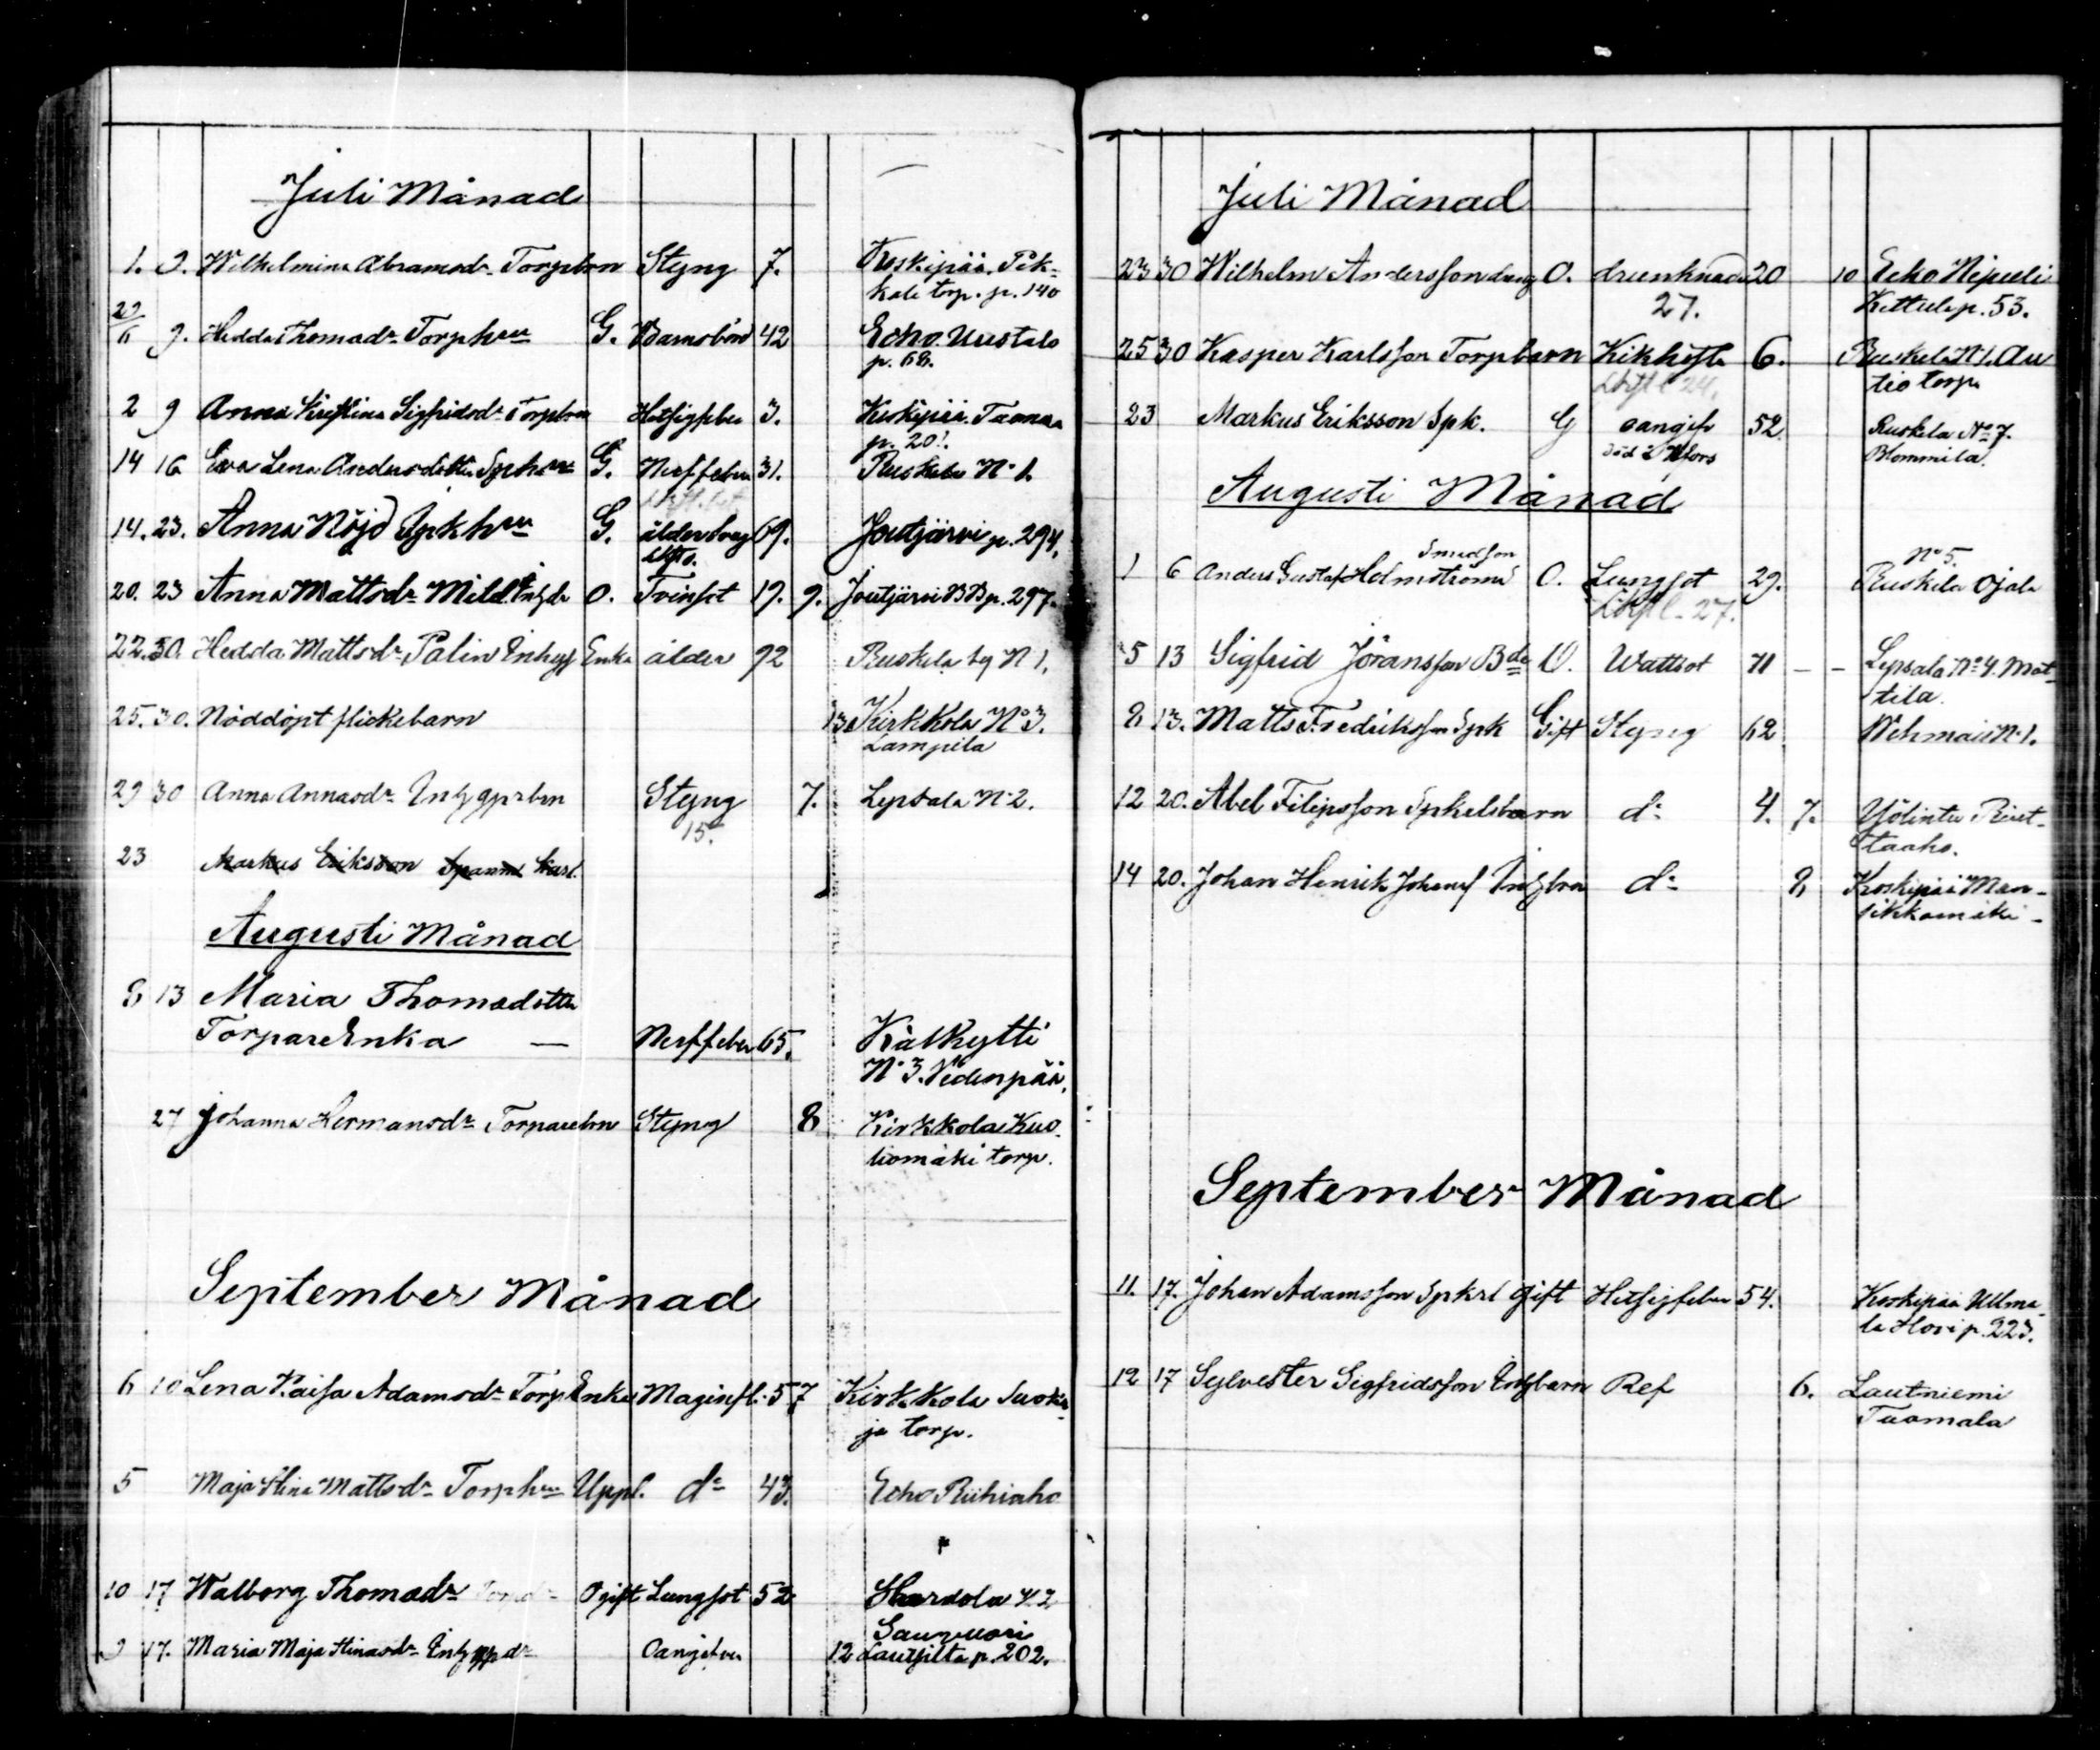 Juli Månad
1. 9. Wilhelmina Abramsdr Torpbrn Styng 7. Koskipää Pik-
kala torp. p. 140
29/6 9. Hedda Thomadr Torphru G. Barnsbörd 42 Echo Uustalo
p. 68.
2 9 Anna Kristina Sigfridsdr Torpbrn Hetsigfeber 3. Koskipää Tuomaa
p. 20!
14 16 Eva Lena Andersdotter Spkhru G. Nerffeber 31. Ruskela No 1.
14. 23. Anna Nöjd Spkhru G. ålderdsvag 69. Joutjärvi p. 294.
20. 23 Anna Mattsdr Mild Inhdr O. Tvinsot 19. 9. Joutjärvi BB p. 297.
22. 30. Hedda Mattsdr Palin Inhys Enka ålder 92 Ruskela by N 1.
25. 30. Nöddöpt flickebarn 13 Kirkkola No 3.
Lampila
29 30 Anna Annasdr Styng 7. Lepsala N 2.
15.
23 Markus Eriksson
Augusti Månad
8 13 Maria Thomadotter
TorpareEnka — Nerffeber 65. Kälkytti
No 3. Vedenpää.
27 Johanna Hermansdr Torparebrn Styng 8 Kirkkola Kuo-
liomäki torp.
September Månad
6 10 Lena Kaisa Adamsdr Torp Enka Maginfl. 57 Kirkkola
ja torp.
5 Maja Stina Mattsdr Torphru Uppl. do 43. Echo Riihiaho
10 17 Walborg Thomadr Ogift Lungsot 52 Skardola 42
Sauvuori
9 17. Maria Maja Stinasdr Oangifven 12 Laursilta p. 202.
Juli Månad
23 30 Wilhelm Andersson dreng O. drunknade 20 10 Echo Nipuli
27. Kettula p. 53.
25 30 Kasper Karlsson Torpbarn Kikhosta 6. Ruskela N 1. Au
tio torp
23 Markus Eriksson Spk. G oangifv 52 Ruskela No 7.
död i Hfors Blommila.
Augusti Månad
Smedson No 5.
1 6 Anders Gustaf Holmström O. Lungsot 29. Ruskela Ojala
27.
5 13 Sigfrid Jöransson Bde O. Wattsot 71 — — Lepsala No 4. Mat-
tila.
8 13. Matts Fredriksson Spk Gift Styng 62 Wehmais N 1.
12 20. Abel Filipsson Spkelsbarn do 4. 7.
taaho.
14 20. Johan Henrik Johansf Inhbrn do 8 Koskipää Man-
sikkamäki -
September Månad
11. 17. Johan Adamsson Spkrl gift Hetsigfeber 54. Koskipää Ullma-
la Hovi p. 223.
12 17 Sylvester Sigfridsson Inhbarn Ref 6. Lautniemi
Tuomala